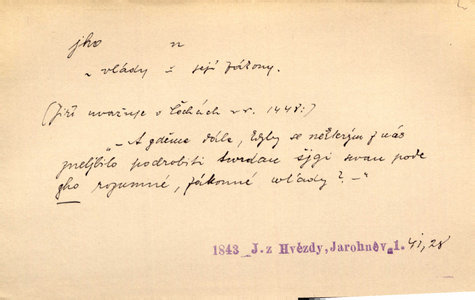 jho n
„ vlády a její zákony.
(Jiří uvažuje o Čechách v r. 1448:)
„— A gděme dále, kdyby se některým z nás
nelíbilo podrobiti twrdau šígi swau pode
gho rozumné, zákonné wlády? —“
1843 J. z Hvězdy, Jarohněv 1. 41, 28